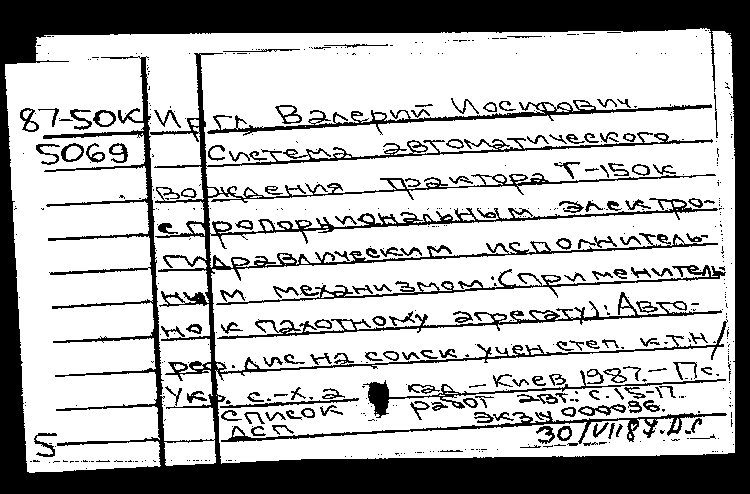 87-50К Иргл, Валерий Иосифович.
5069 Система автоматического
вождения трактора Т-150К
с пропорциональным электро-
гидравлическим исполнитель-
ным механизмом: (применитель-
но к пахотному агрегату): Авто-
реф. дис. на соиск. учен. степ. к.т.н./
Укр. с.-х. а кад. - Киев, 1987. - 17с.
Список работ авт.: с. 15-17.
ДСП Экз.N 000096.
30/VII87.